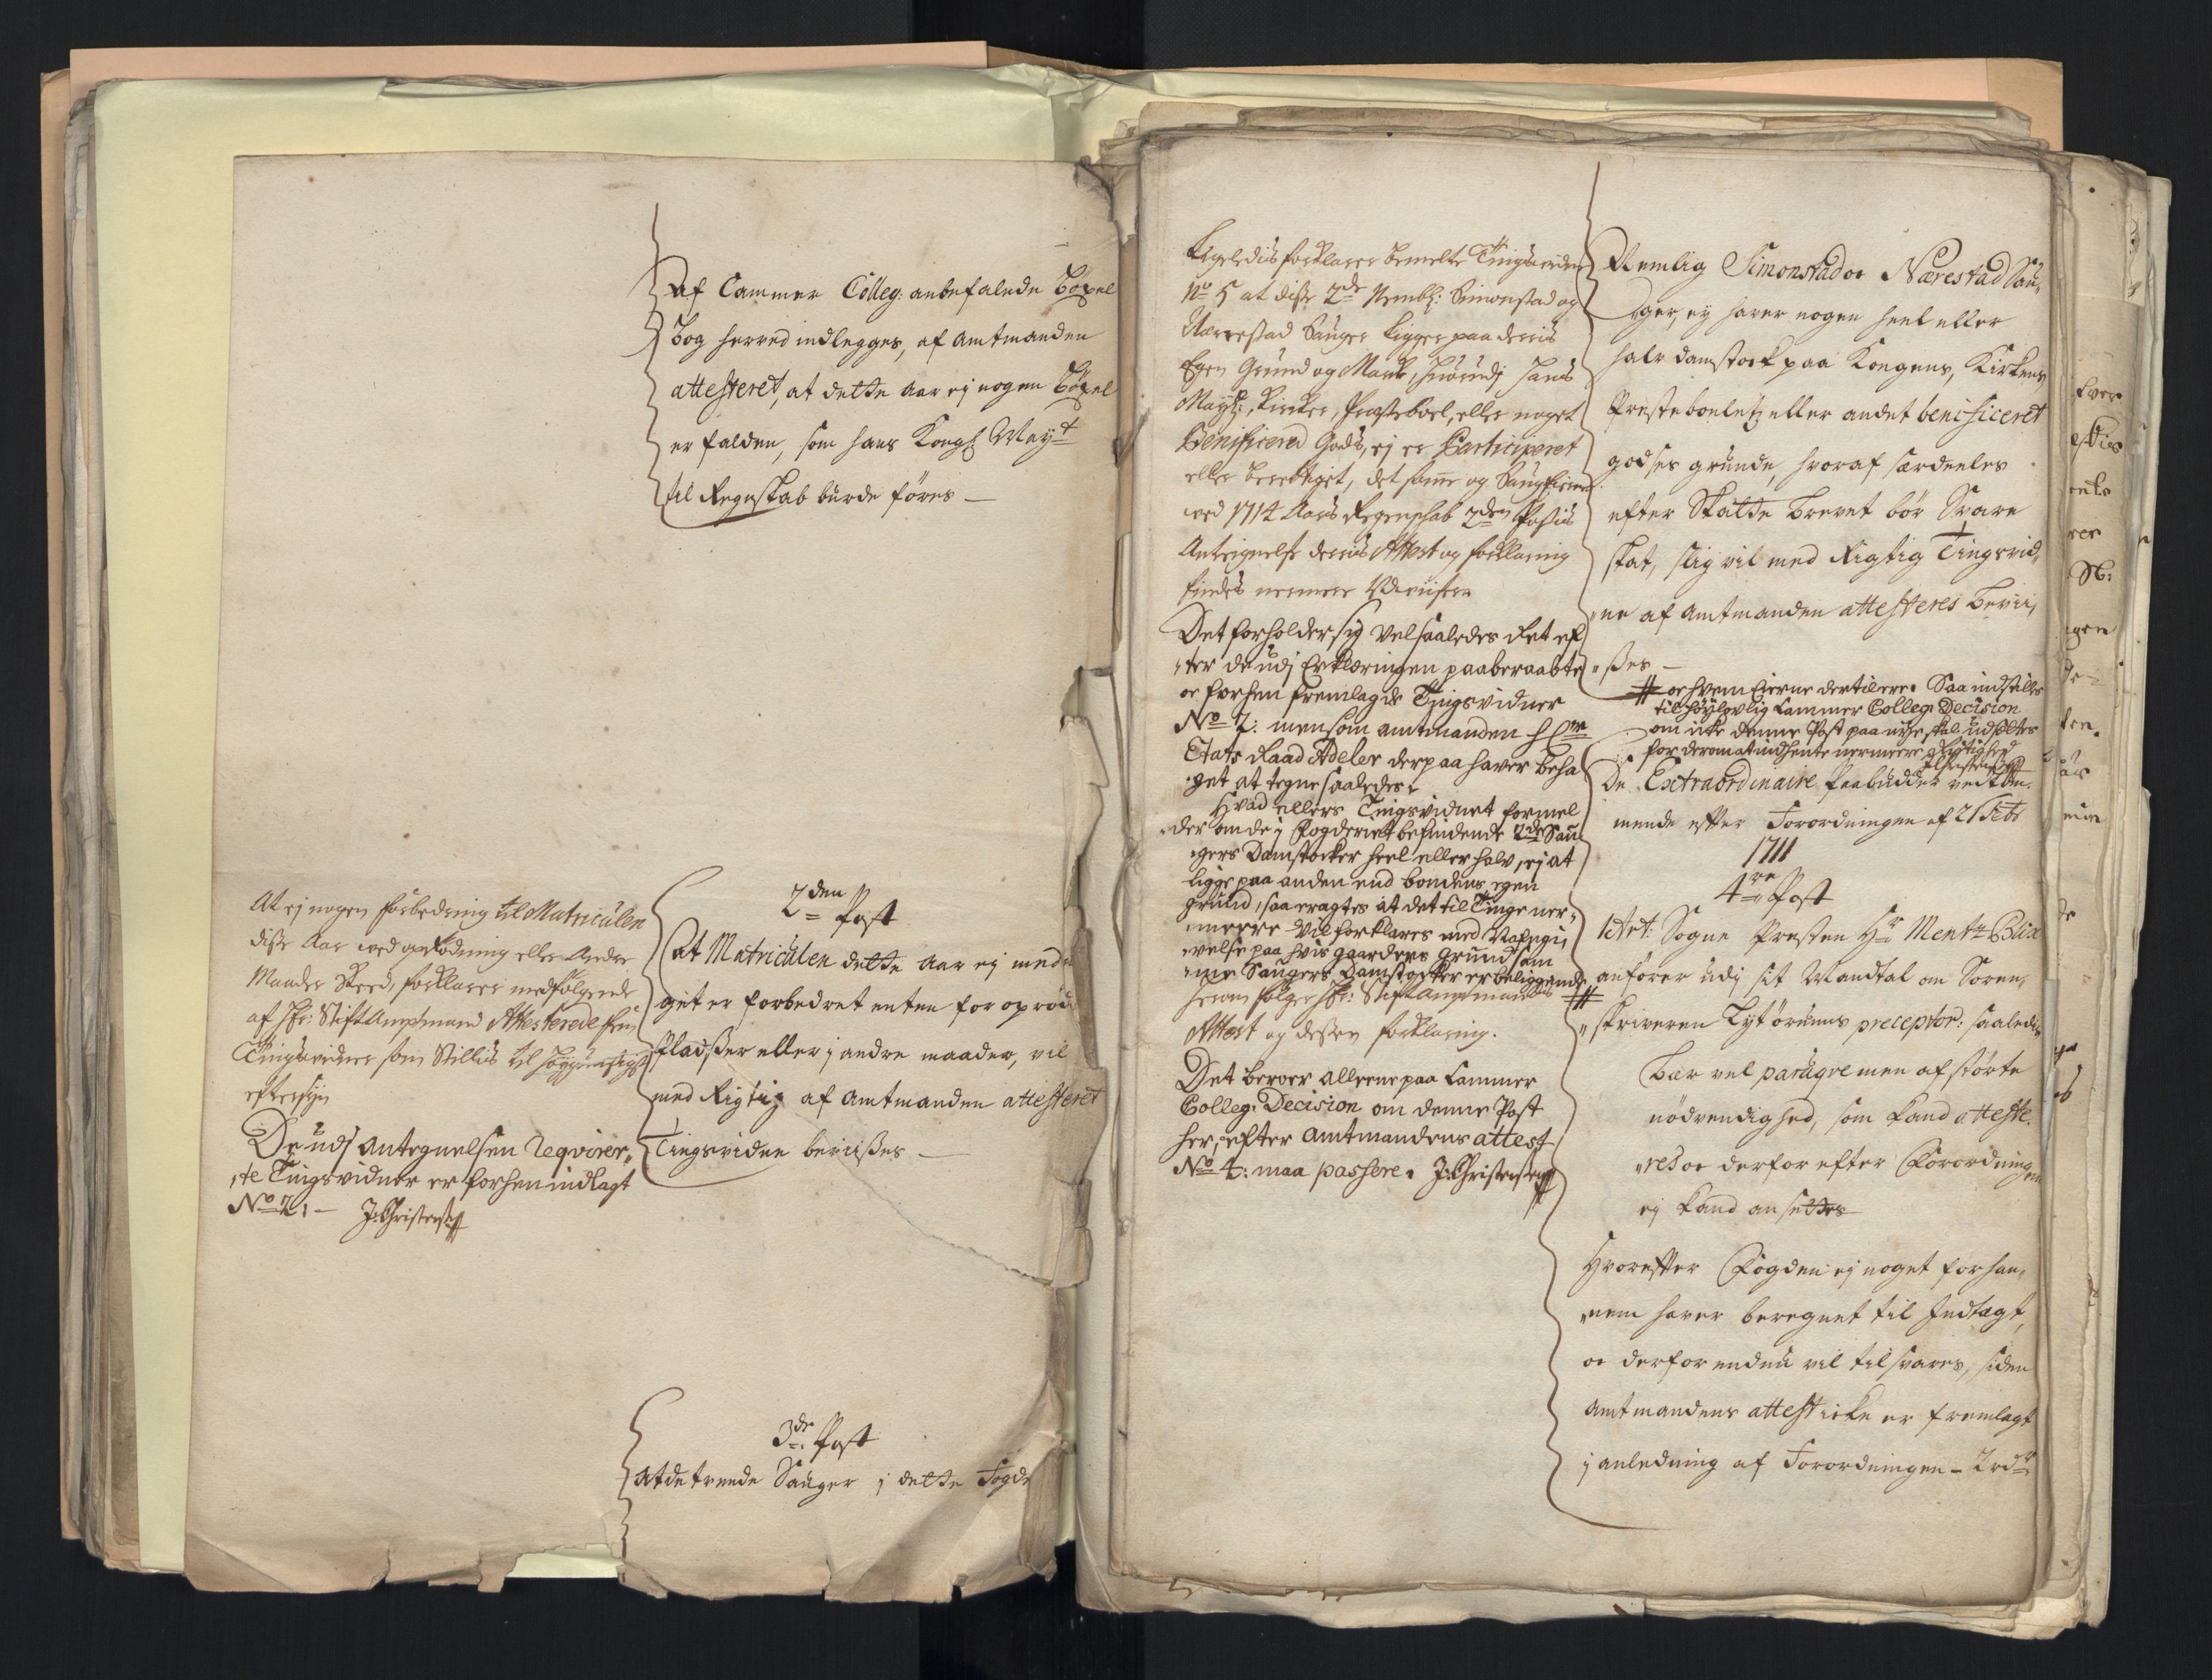 Af Cammer Colleg: anbefalede Böxel
bog herved indlegges, af Amtmanden
attesteret, at dette Aar ej nogen Böxel
er falden, som hans Kongl May:t
til Regnskab burde føres —
At ej nogen forbedring til Matriculen
disse Aar ved oprödning eller Andre
Maader Skeed, forklarer medfølgende
af Hr: StiftAmptmand Attesterede
Tingsvidner som Stilles til
eftersyn
De udj Antegnelsen reqvirer,
,te Tingsvidner er forhen indlagt
No 2, — J: Christensen
2den Post
At Matriculen dette Aar ej med no
get er forbedret enten for oprød
pladsser eller j andre maader, vil
med Rigtig af Amtmanden attesteret
Tingsvidne beviisses —
3de Post
At de tvende Sauger j dette Fogde
Ligeledis forklarer bemelte Tingsvidne
No 5 at disse 2de Nembl: Simonstad og
Nærrestad Sauger Ligger paa deris
Egen Grund og Mark, hvorudj hans
Mayt:, Kircker, Præsteboel, eller noget
Benificered Gods, ej er Participeret
eller berettiget, det samme og
ved 1714 Aars Regenschab 2den Postis
Antegnelse derris Attest og forklaring
findes nermere Udviiser
Det forholder sig vel saaledes Ret ef
,ter de udj Erklæringen paaberaabte
oc forhen fremlagde Tingsvidner
No 2: men som amtmanden H
Etats Raad Adeler derpaa haver beha
,get at tegne saaledes,
Hvad ellers Tingsvidnet formel
,der om de j Fogderiet befindende 2de Sau
,gers Damstocker heel eller halv, ej at
ligge paa anden end bondens egen
grund, saa eragtes at det til Tinge ner,
,meere vil forklares med
,velse paa hvis gaarders grund som
,me Saugers Damstocker er beliggende
herom følger Hr: StiftAmptmandens
Attest og dessen forklaring.
Det beroer alleene paa Cammer
Colleg: Decision om denne Post
her, efter Amtmandens attest
No 4: maa passere. J: Christensen
Nemlig Simonstad oc Nærestad Sau,
,ger, ey haver nogen heel eller
halv damstock paa Kongens, Kirkens
Prestebolets eller andet benificeret
godses grunde, hvoraf særdeeles
efter Skatte brevet bør Svare
skat, slig vil med Rigtig Tingsvid,
,ne af Amtmanden attesteres bevii,
,sses —
# oc hvem Eierne dertil ere. Saa indstilles
til høylovlig Cammer Colleg: Decision
om icke denne Post paa nye skal udsættes
for derom at indhente nermeere Rigtighed
De Extraordinaire Paabudder vedkom,
mende efter Forordningen af 21 Octb
1711
4re Post
1 Art: Sogne Presten Hr Mentz Blix
anfører udj sit Mandtal om Soren,
,skriveren Lytörums preceptor: saaledis
bær vel paruqve men af störte
nödvendighed, som kand atteste,
,res oc derfor efter Forordningen
ej kand ansettes —
Hvorefter Fogden ej noget for han,
,nem haver beregnet til Indtægt,
oc derfor endnu vil tilsvares, siden
amtmandens attest icke er fremlagt
j anledning af Forordningen - 2 rdr